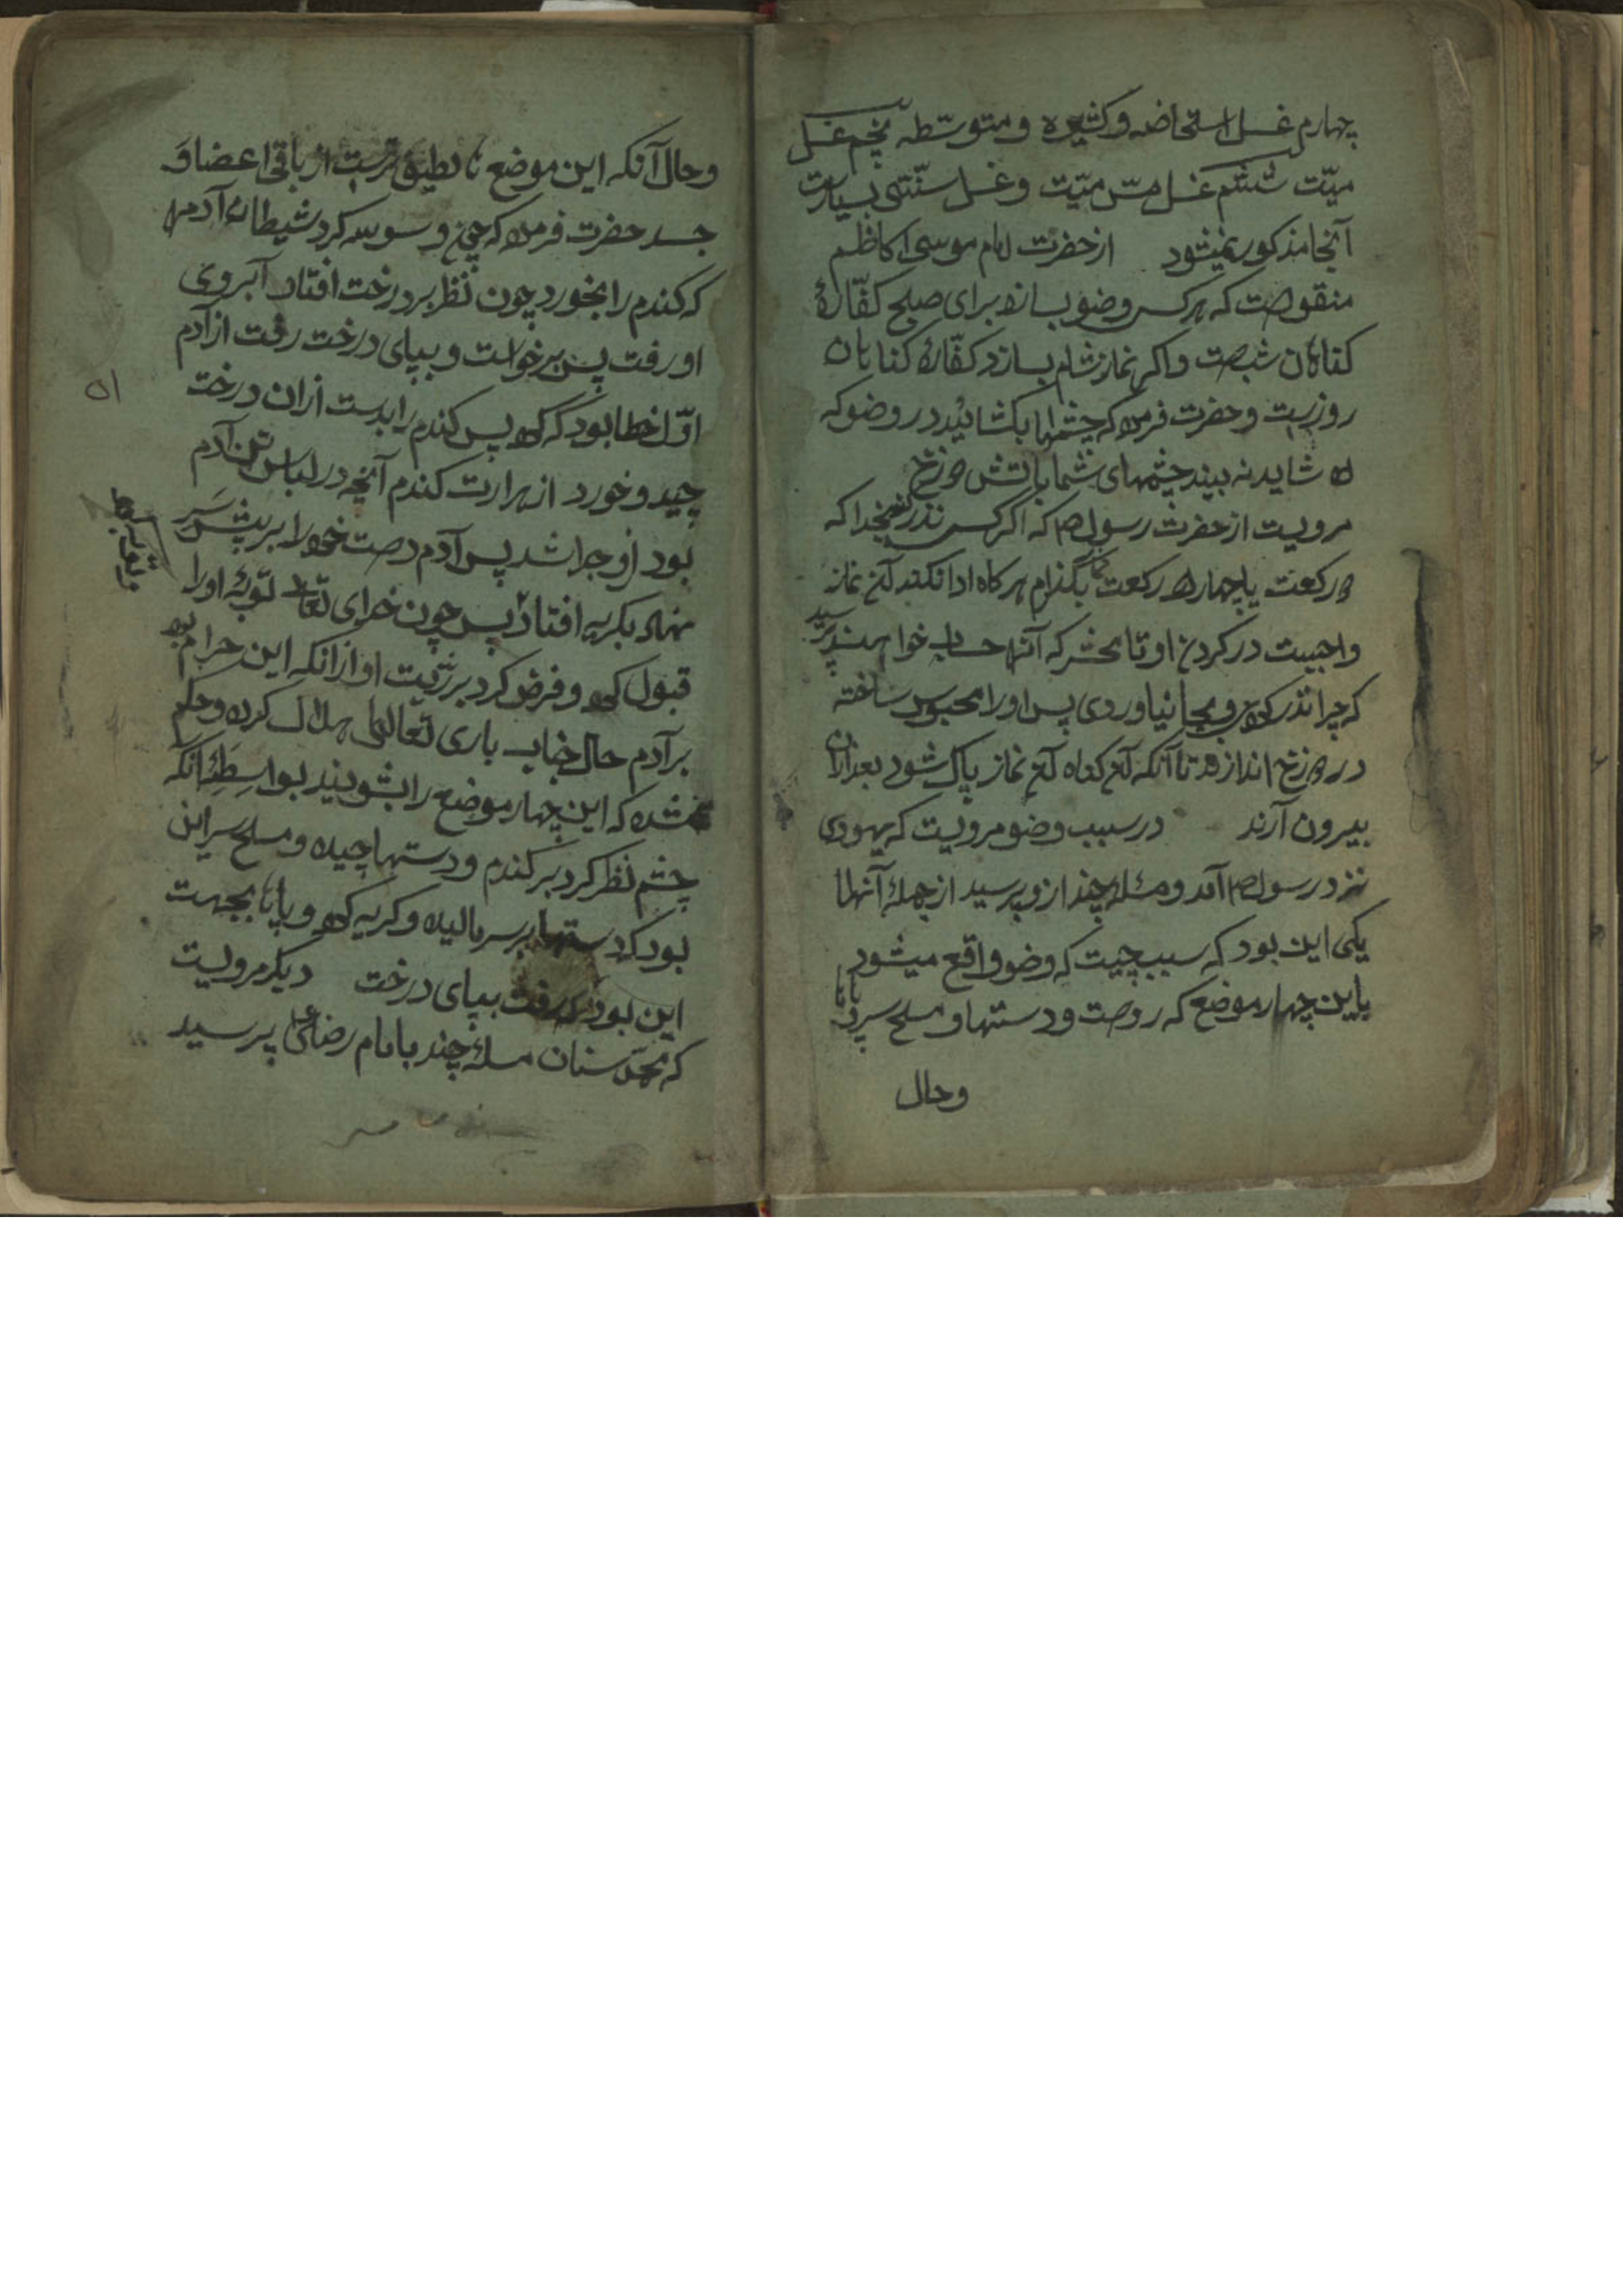 چهارم غسل استحاضه و کثیره و متوسّطه پنجم غسل
میّت ششم غسل مسّ میّت و غسل سنّتی بسیارست
آنجا مذکور نمیشود از حضرت امام موسی کاظم
منقولست که هر کس وضو بسازد برای صبح کفّارهٔ
کناهان شبست و اکر نماز شام بسازد کفّارهٔ کناهان
روزست و حضرت فرموده که چشمها بکشائید در وضو که
شاید نه بیند چشمهای شما باتش دوزخ
مرویست از حضرت رسول ص که اکر کسی نذر کند بخدا که
دو رکعت یا چهار رکعت نماز بگذارم هر کاه ادا نکند آن نماز
واجبست در کردن او تا محشر که آنها حساب خواهند پرسید
که چرا نذر کردی و بجا نیاوردی پس او را محبوس ساخته
در دوزخ اندازند تا آنکه آن کناه آن نماز پاک شود بعد ازان
بیرون آرند در سبب وضو مرویست که یهودی
نزد رسول ص آمد و مسئله چند ازو پرسید از جملهٔ آنها
یکی این بود که سبب چیست که وضو واقع میشود
باین چهار موضع که روست و دستها و مسح سر و پاها
وحال
۵۱
وحال آنکه این موضع ها از باقی اعضا و
جسد حضرت فرمود که چون وسوسه کرد شیطان آدم
که کندم را بخورد چون نظر بر درخت افتاد آبروی
او رفت پس برخواست و بپای درخت رفت از آدم
اوّل خطا بود که کرد پس کندم را بدست ازان درخت
چید و خورد از هرارت کندم آنچه در لباس تن آدم
بود ازو جدا شد پس آدم دست خود را بر پیش سر
نهاد بکریه افتاد پس چون خدای تعالی توبهٔ او را
قبول کرد و فرض کرد بر ذرّیت او ازانکه این حرام بود
بر آدم حال جناب باری تعالی هلال کرده و حکم
شده که این چهار موضع را بشویند بواسطهٔ آنکه
چشم نظر کرد بر کندم و دستها چیده و مسح سر این
بود که دستها بر سر مالیده و کریه کرد و پاها بجهت
این بود که رفت بپای درخت دیکر مرویست
که محمد سنان مسئلهٔ چند با امام رضا ع پرسید